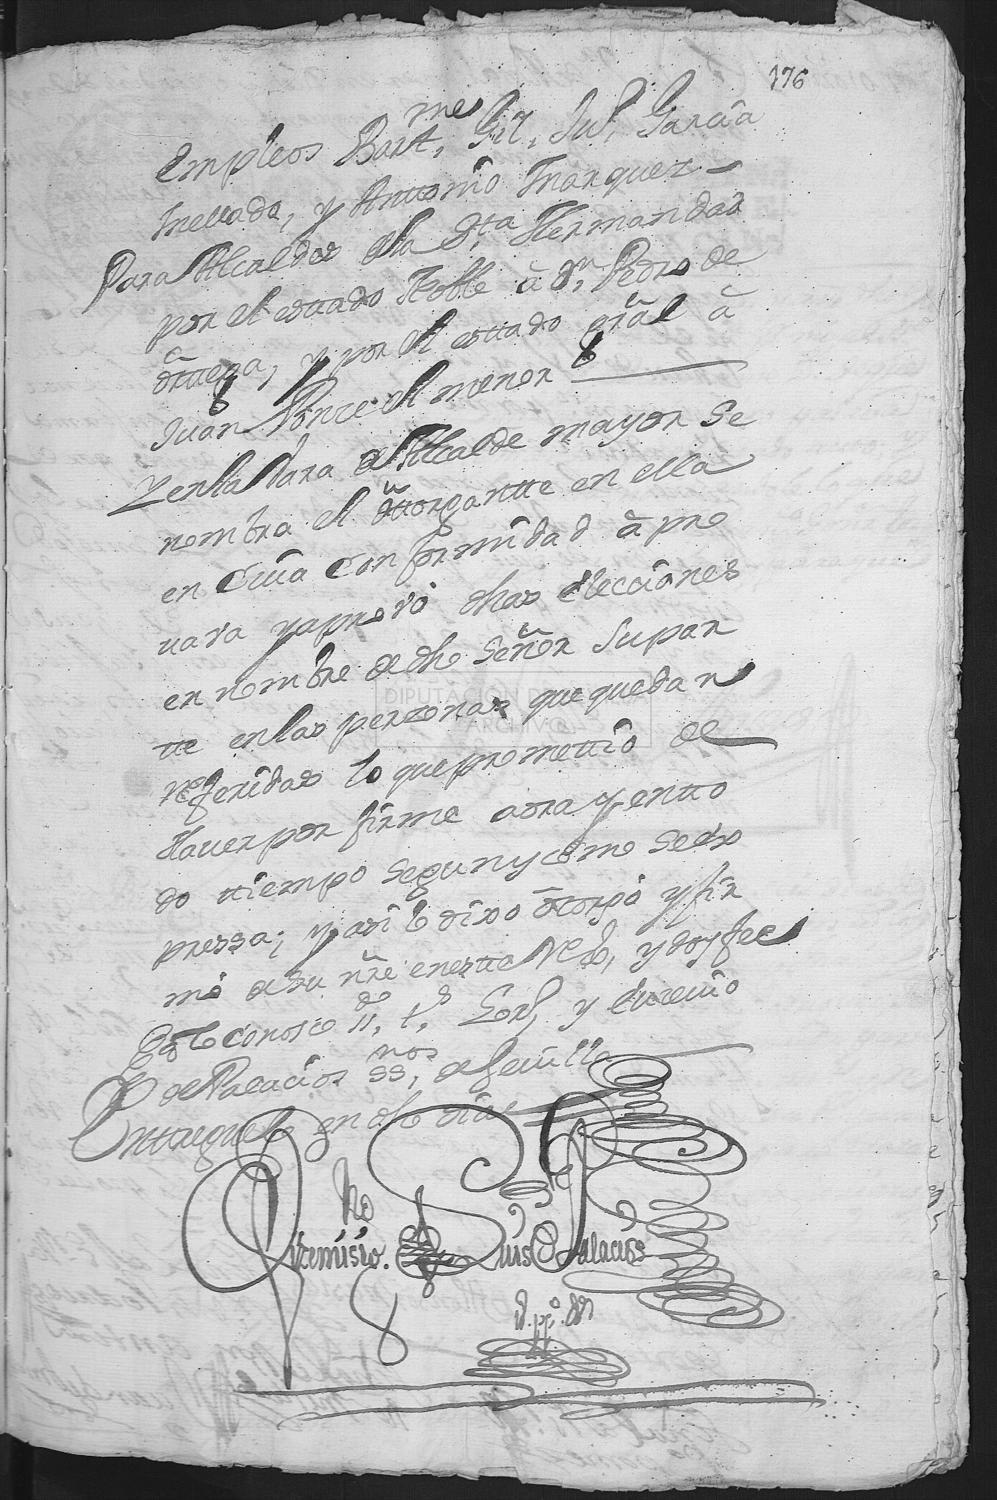 176
empleos Bartmes, Gil, Jul, Garcia
Mellado, y Antonio Marquez
Para Alcaldes de la Sta, Hermandad
por el estado Noble â Dn, Pedro de
y por el esttado gral â
Juan Ponze el menor
Zerla Vara de Alcalde mayor se
nombra el ôttorgantte en ella
en Cuia Conformidad âpro
vava yaprovó dhas elecciones
en nombre de dho Señor Su par
tte enlas perzonas que quedan
referidas lo que promettio de
Haver por firme aora y entto
do ttiempo segun y como se ex
pressa; y asi lo dixo ôtorgó y fir
mó de su nre en estte Rexo, y doy fee
conosco tt, to, y Eusevio
de Palacios ssnos, de Sevilla
en dho dia
DIPUTACIÓN DE
ARCHIVO
Luis de Palacios